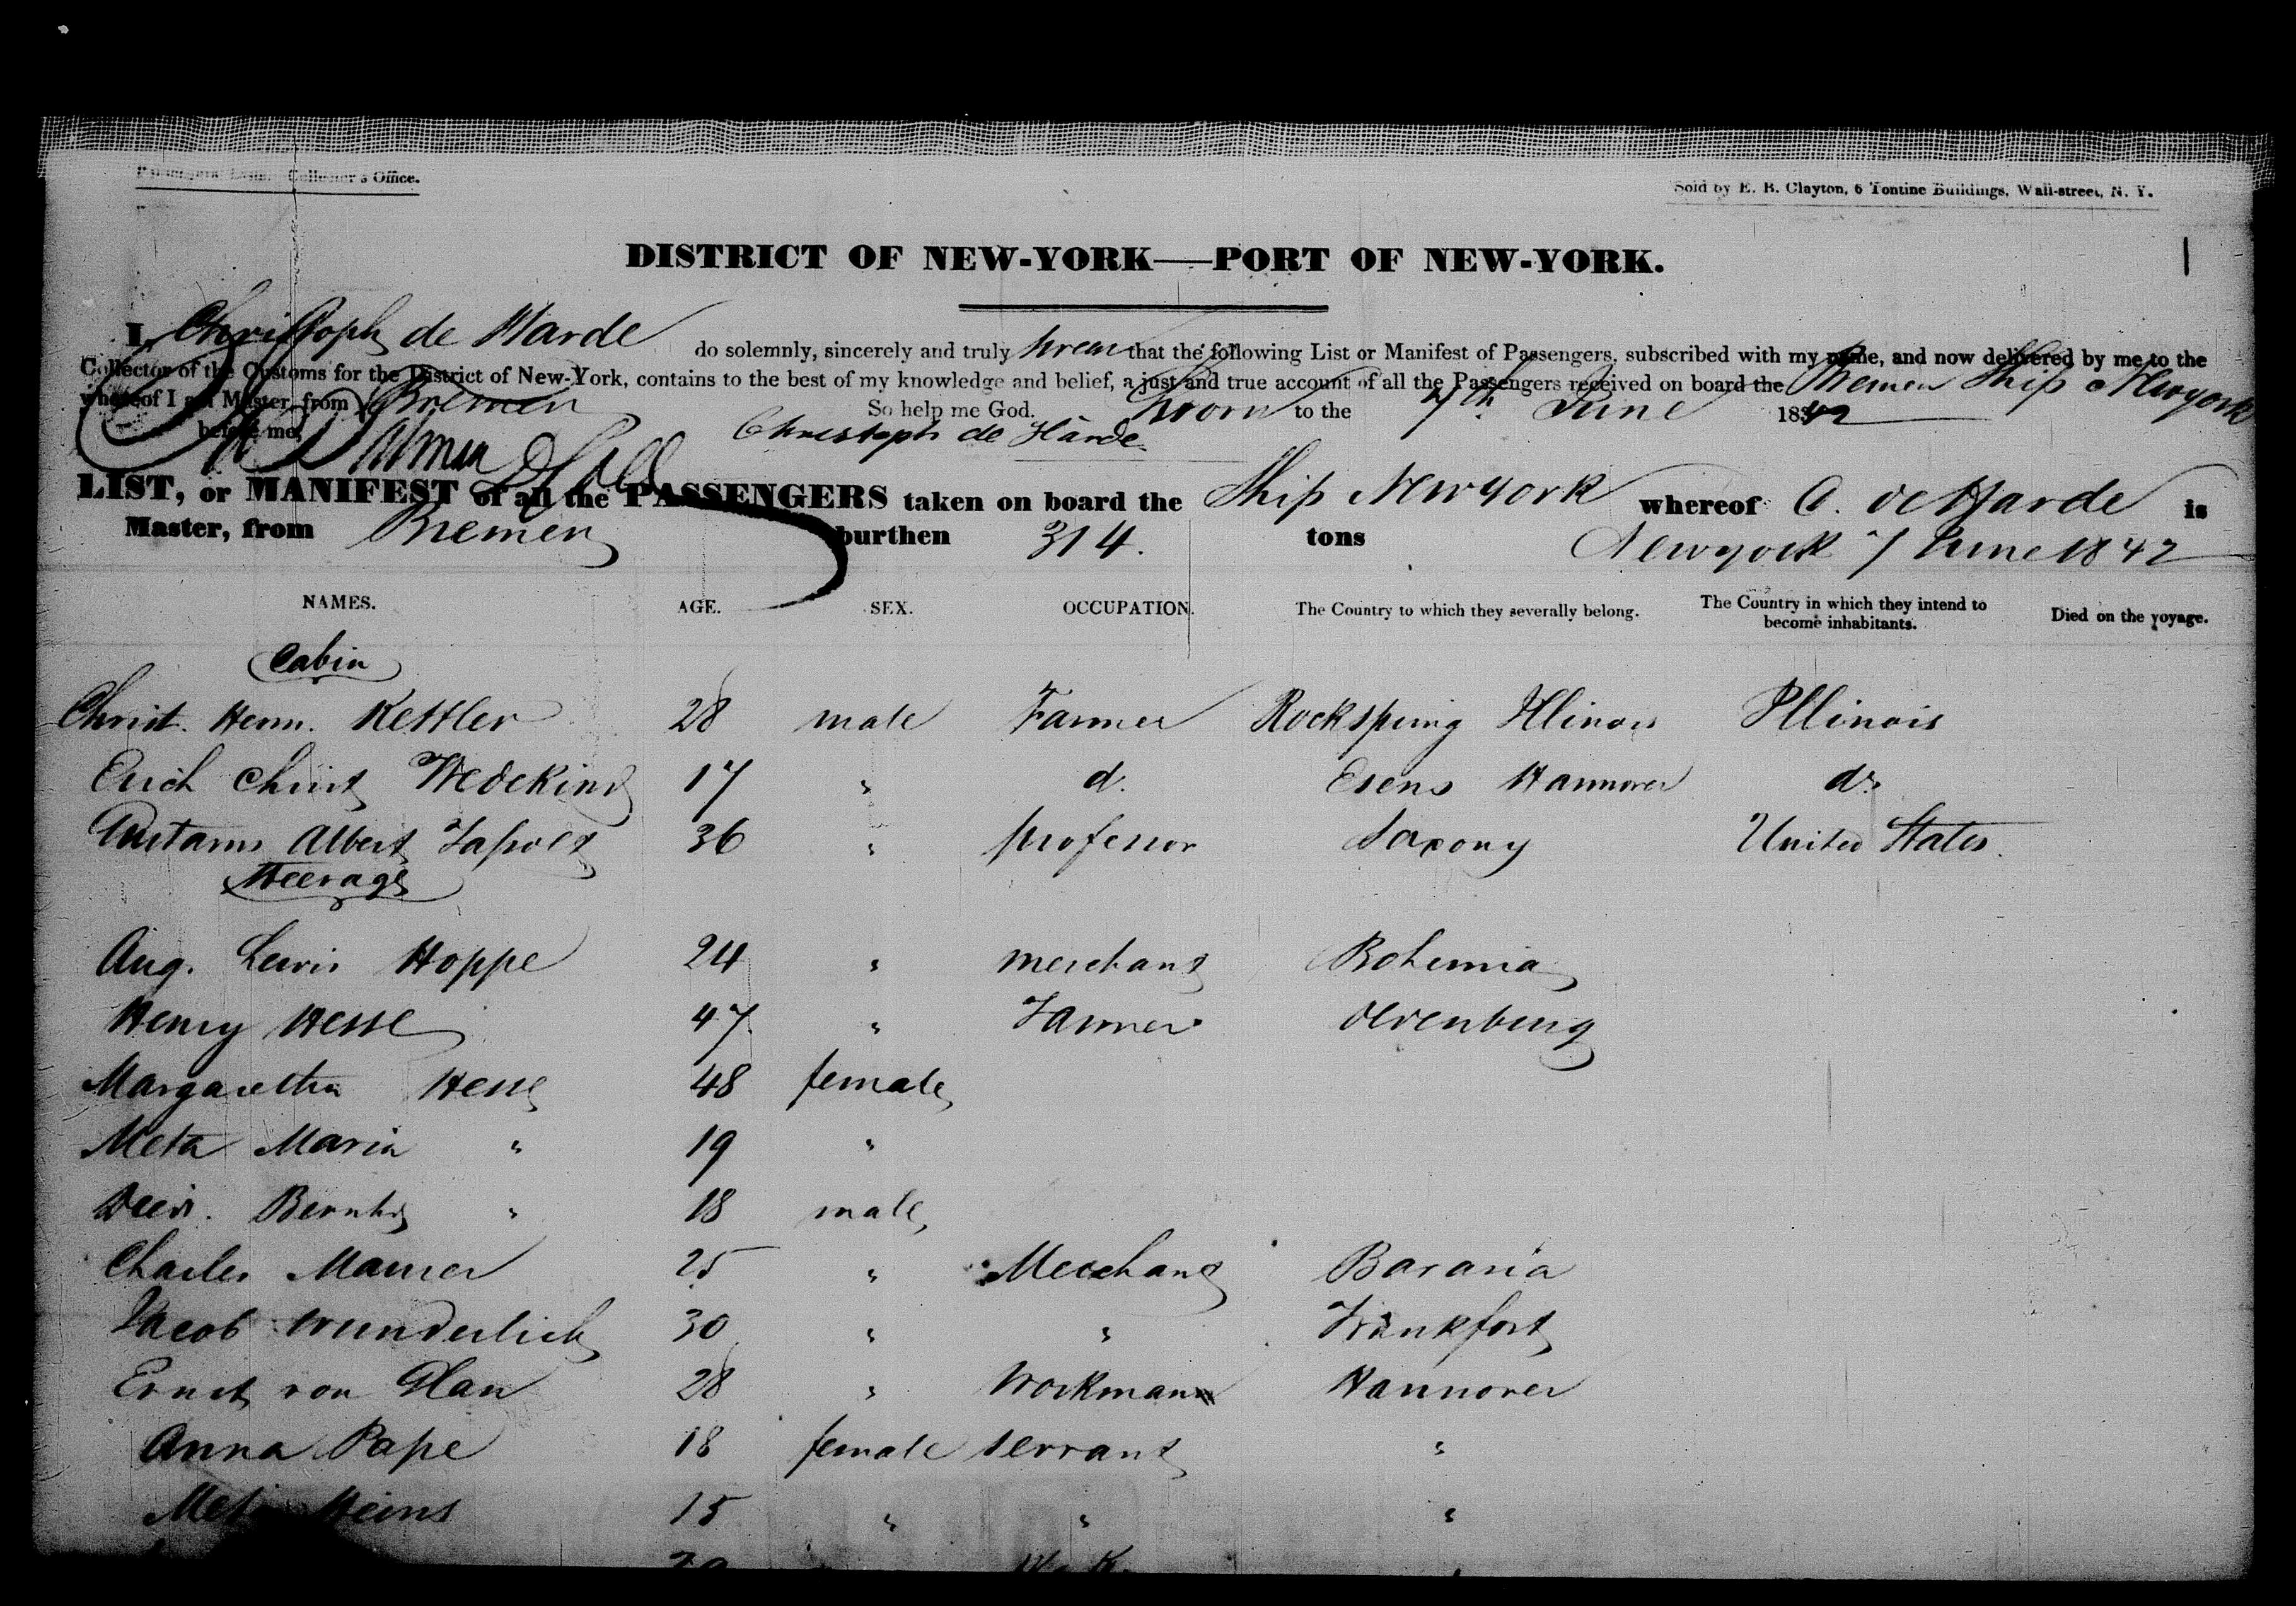 Passengers' List. Collector's Office.
Sold by E. B. Clayton, 6 Tontine Buildings, Wall-street, N. Y.
DISTRICT OF NEW-YORK—PORT OF NEW-YORK.
1
I, Christoph de Harde do solemnly, sincerely and truly swear that the following List or Manifest of Passengers, subscribed with my name, and now delivered by me to the
Collector of the Customs for the District of New-York, contains to the best of my knowledge and belief, a just and true account of all the Passengers received on board the Bremen Ship Newyork
whereof I am Master, from Bremen
So help me God. Sworn to the 7th June 1842
before me, Christoph de Harde
LIST, or MANIFEST of all the PASSENGERS taken on board the Ship Newyork whereof C. de Harde is
Master, from Bremen burthen 314. tons Newyork 7 June 1842
NAMES. AGE. SEX. OCCUPATION. The Country to which they severally belong. The Country in which they intend to become inhabitants. Died on the voyage.
Cabin
Christ. Herm. Kettler 28 male Farmer Rockspring Illinois Illinois
Erich Christ Wedekind 17 " d. Esens Hannover do.
Albert 36 " professor Saxony United States.
Steerage
Aug. Lewis Hoppe 24 " merchant Bohemia
Henry Hesse 47 " Farmer Oldenburg
Margaretha Hesse 48 female
Meta Maria " 19 "
Died. Bernhd " 18 male
Charles Maurer 25 " Merchant Bavaria
Jacob Wunderlich 30 " " Frankfort
Ernst von Glan 28 " Workman Hannover
Anna Pape 18 female servant "
Meta Heins 15 " " "